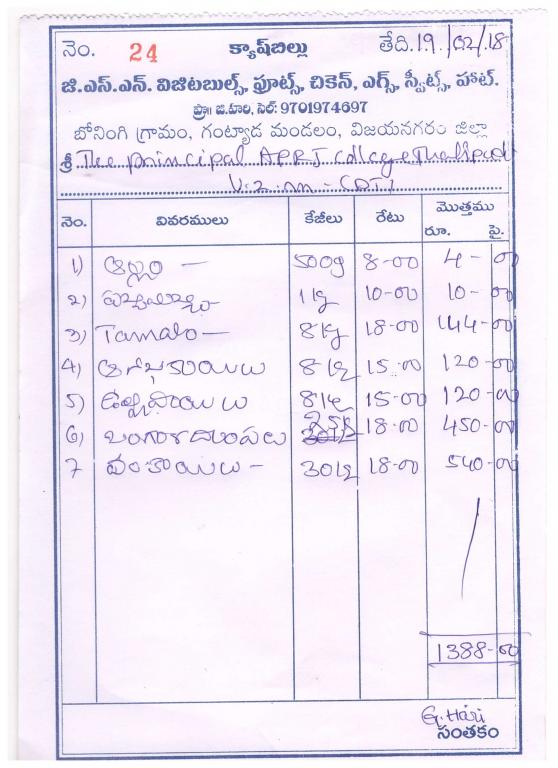 నెం. 24 క్యాష్‌బిల్లు తేది.19/02/18
జి.ఎస్.ఎన్. విజిటబుల్స్, ఫ్రూట్స్, చికెన్, ఎగ్స్, స్వీట్స్, హాట్.
ప్రొ॥ జి.హరి, సెల్: 9701974697
బోనంగి గ్రామం, గంట్యాడ మండలం, విజయనగరం జిల్లా
శ్రీ The principal APRJ College
Vzm
నెం. వివరములు కేజీలు రేటు మొత్తము
రూ. పై.
1) అల్లం - 500g 8-00 4-00
2) 1kg 10-00 10-00
3) Tamato - 8kg 18-00 144-00
4) 8kg 15-00 120-00
5) ఉల్లిపాయలు 8kg 15-00 120-00
6) బంగాళదుంపలు 18-00 450-00
7 వంకాయలు - 30kg 18-00 540-00
1388-00
G. Hari
సంతకం